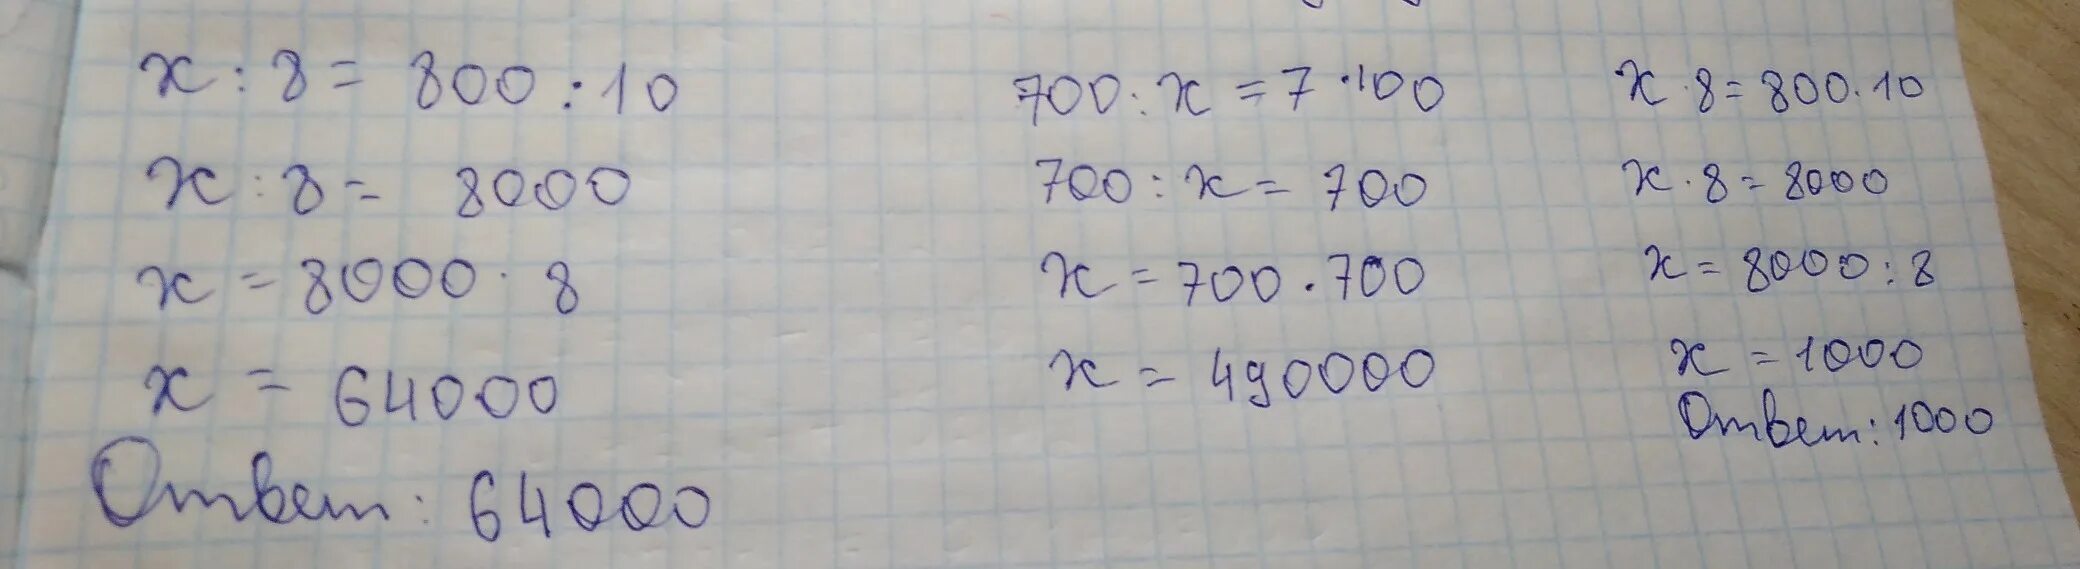 x : 8 = 800 : 10
x : 8 = 8000
x = 8000 · 8
x = 64000
Ответ: 64000
700 : x = 7 · 100
700 : x = 700
x = 700 · 700
x = 490000
x · 8 = 800 · 10
x · 8 = 8000
x = 8000 : 8
x = 1000
Ответ: 1000